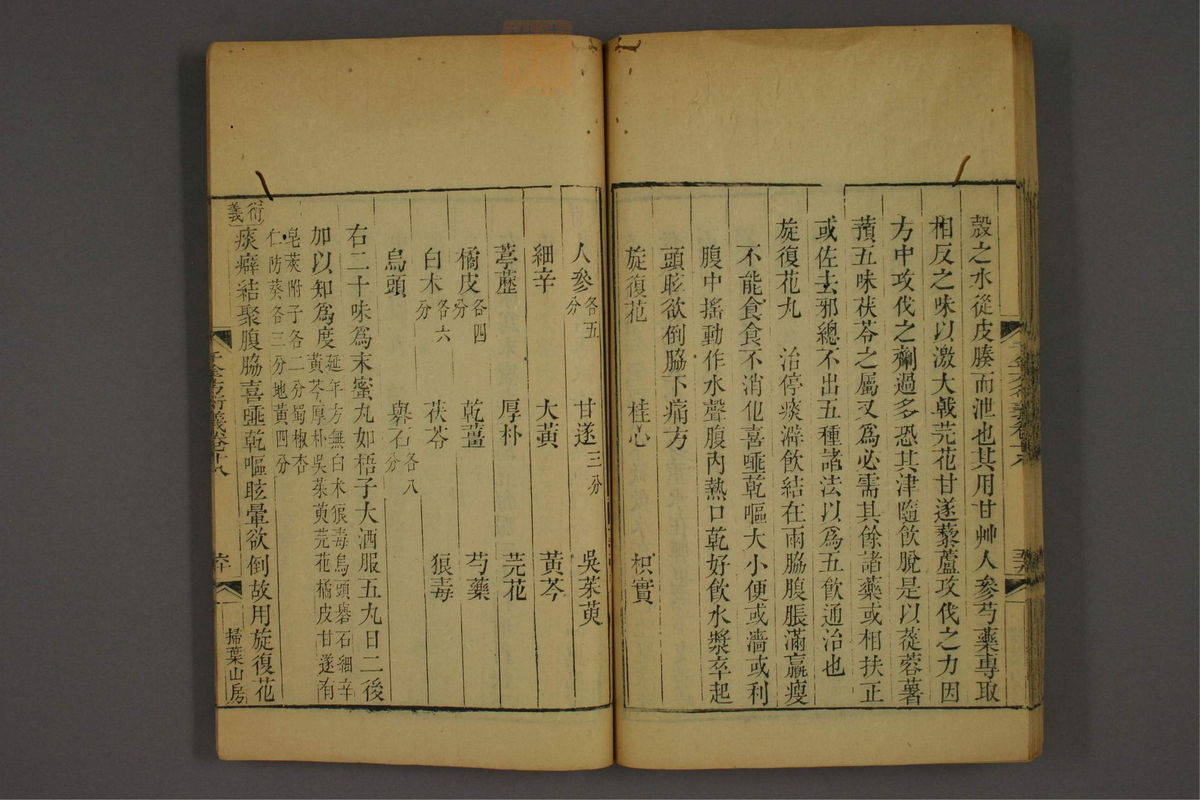 殼之水從皮腠而泄也其用甘艸人參芍藥專取
相反之味以激大戟芫花甘遂藜蘆攻伐之力因
方中攻伐之劑過多恐其津隨飮脫是以蓯蓉薯
蕷五味茯苓之屬又爲必需其餘諸藥或相扶正
或佐去邪總不出五種諸法以爲五飮通治也
旋復花丸　治停痰澼飮結在兩脇腹脹滿羸瘦
不能食食不消化喜唾乾嘔大小便或濇或利
腹中搖動作水聲腹內熱口乾好飮水漿卒起
頭眩欲倒脇下痛方
旋復花　桂心　枳實
人參各五分　甘遂三分　吳茱萸
細辛　大黃　黃芩
葶藶　厚朴　芫花
橘皮各四分　乾薑　芍藥
白朮各六分　茯苓　狼毒
烏頭　礜石各八分
右二十味爲末蜜丸如梧子大酒服五丸日二後
加以知爲度延年方無白朮狼毒烏頭礜石細辛
黃芩厚朴吳茱萸芫花橘皮甘遂有
皂莢附子各二分蜀椒杏
仁防葵各三分地黃四分
衍義　痰癖結聚腹脇喜唾乾嘔眩暈欲倒故用旋復花
千金方衍義卷十八
六十
掃葉山房